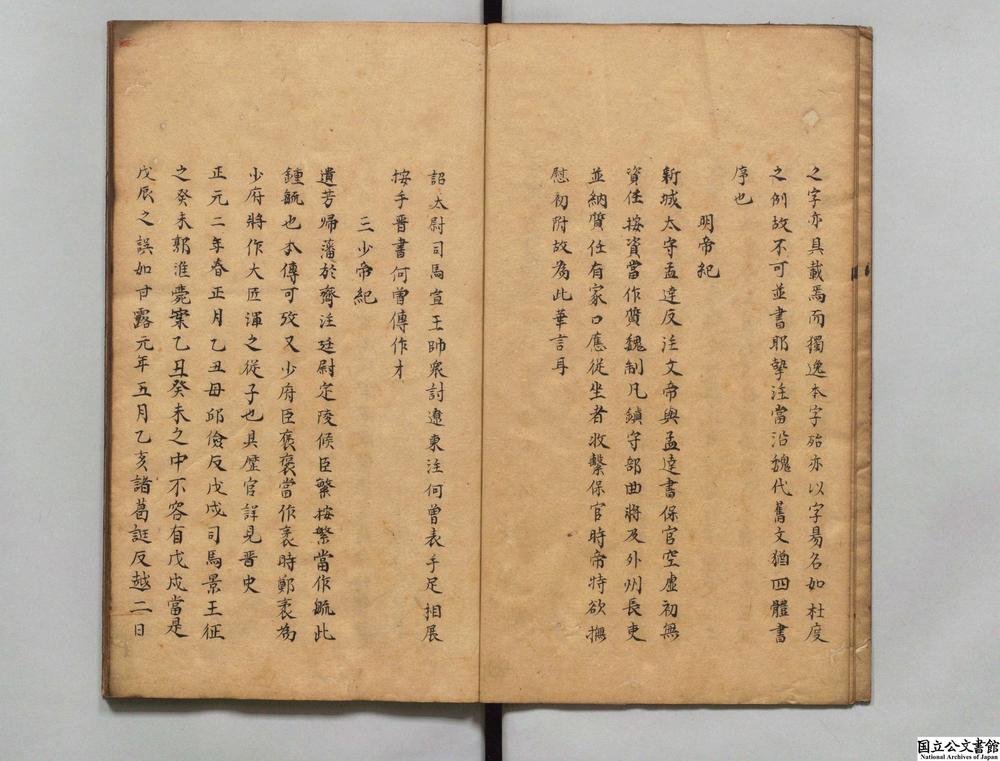 之字亦具載焉而獨逸本字殆亦以字易名如杜度
之例故不可並書耶摯注當沿魏代舊文猶四體書
序也
明帝紀
新城太守孟達反注文帝與孟達書保官空虛初無
資任按資當作質魏制凡鎮守部曲將及外州長吏
並納質任有家口應從坐者收繫保官時帝特欲撫
慰初附故為此華言耳
詔太尉司馬宣王帥衆討遼東注何曾表手足相展
按手晉書何曾傳作才
三少帝紀
遣芳歸藩於齊注廷尉定陵候臣繁按繁當作毓此
鍾毓也本傳可攷又少府臣褒褒當作袤時鄭袤為
少府將作大匠渾之從子也具歷官詳見晉史
正元二年春正月乙丑毋邱儉反戊戌司馬景王征
之癸未郭淮薨案乙丑癸未之中不容有戊戌當是
戊辰之誤如甘露元年五月乙亥諸葛誕反越二日
国立公文書館
National Archives of Japan